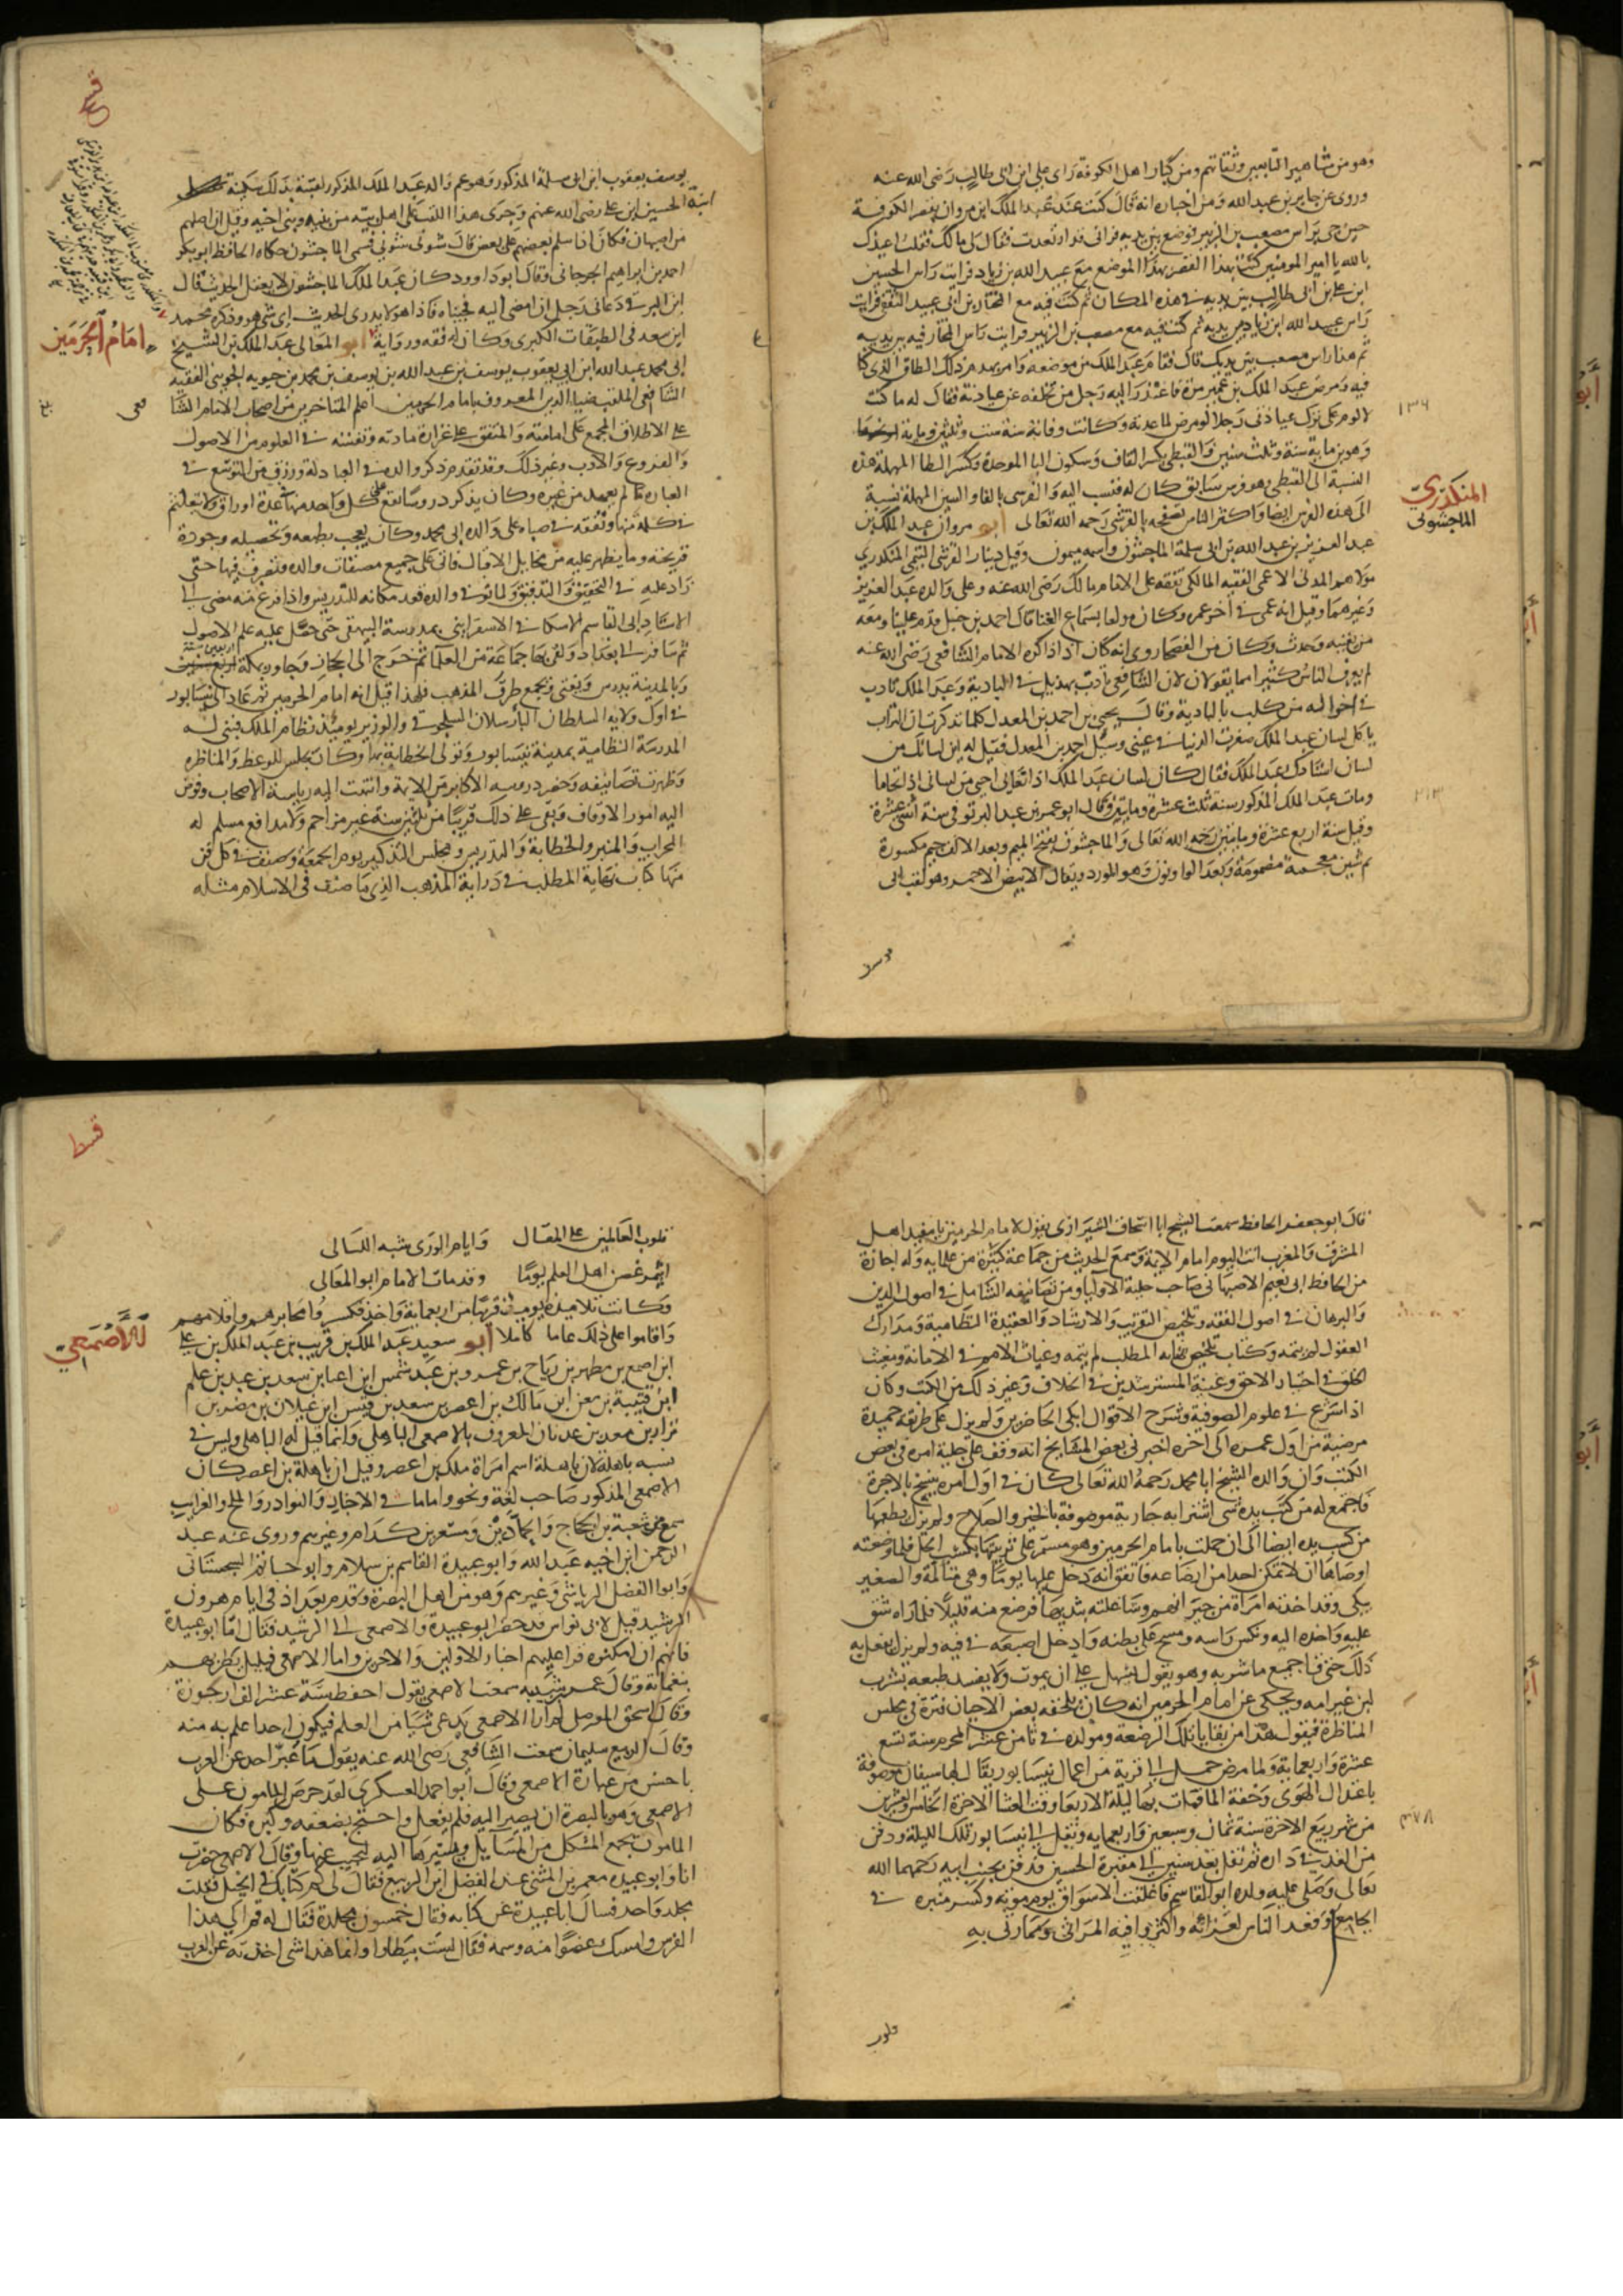 وهو من مشاهير التابعين وثقاتهم ومن كبار اهل الكوفة راى على ابن ابى طالب رضى الله عنه
وروى عن جابر بن عبد الله ومن اخباره انه قال كنت عند عبد الملك ابن مروان بقصر الكوفة
حين جى براس مصعب بن الزبير فوضع بين يديه فرانى قد ارتعدت فقال لى مالك فقلت اعيذك
بالله يا امير المومنين كنت بهذا القصر بهذا الموضع مع عبيد الله بن زياد فرايت راس الحسين
ابن على بن ابى طالب بين يديه فى هذه المكان ثم كنت فيه مع المختار بن ابى عبيد الثقفى فرايت
راس عبيد الله ابن زياد بين يديه ثم كنت فيه مع مصعب بن الزبير فرايت راس المختار فيه بين يديه
ثم هذا راس مصعب بين يديك قال فقام عبد الملك من موضعه وامر بهدم ذلك الطاق الذى كنا
فيه ومرض عبد الملك بن عمير مرة فاعتذر اليه رجل من تخلفه عن عيادته فقال له ما كنت
لالوم على ترك عيادتى رجلا لو مرض لما عدته وكانت وفاته سنة ست وثلثين وماية
وهو بن ماية سنة وثلث سنين والقبطى بكسر القاف وسكون البا الموحدة وكسر الطا المهملة هذه
النسبة الى القبطى وهو فرس سابق كان له فنسب اليه والفرسى بالفا والسين المهملة نسبة
الى هذه الفرس ايضا واكثر الناس يصحفه بالقرشى رحمه الله تعالى ابو مروان عبد الملك بن
عبد العزيز بن عبد الله بن ابى سلمة الماجشون واسمه ميمون وقيل دينار القرشى التيمى المنكدرى
مولاهم المدنى الاعمى الفقيه المالكى تفقه على الامام مالك رضى الله عنه وعلى والده عبد العزيز
وغيرهما وقيل انه عمى فى اخر عمره وكان مولعا بسماع الغنا قال احمد بن حنبل قدم علينا ومعه
من يغنيه وحدث وكان من الفصحا روى انه كان اذا ذاكره الامام الشافعى رضى الله عنه
لم يعرف الناس كثيرا مما يقولان لان الشافعى تادب بهذيل فى البادية وعبد الملك تادب
فى اخواله من كلب بالبادية وقال يحيى بن احمد بن المعدل كلما تذكرت ان التراب
ياكل لسان عبد الملك صغرت الدنيا فى عينى وسئل احمد بن المعدل فقيل له اين لسانك من
لسان استاذك عبد الملك فقال كان لسان عبد الملك اذا تعايى احيى من لسانى اذا تحايا
ومات عبد الملك المذكور سنة ثلث عشرة ومايتين وقال ابو عمر بن عبد البر توفى سنة اثنى عشرة
وقيل سنة اربع عشرة ومايتين رحمه الله تعالى والماجشون بفتح الميم وبعد الالف جيم مكسورة
ثم شين معجمة مضمومة وبعد الواو نون وهو المورد ويقال الابيض الاحمر وهو لقب ابى
١٣٦
المنكدرى
الماجشونى
٢١٣
يوسف يعقوب ابن ابى سلمة المذكور وهو عم والد عبد الملك المذكور لقبته بذلك سكينة
ابنة الحسين ابن على رضى الله عنهم وجرى هذا اللقب على اهل بيته من بنيه وبنى اخيه وقيل ان اصلهم
من اصبهان فكان اذا سلم بعضهم على بعض قال شونى شونى فسمى الماجشون حكاه الحافظ ابو بكر
احمد بن ابراهيم الجرجانى وقال ابو داوود كان عبد الملك الماجشون لا يعقل الحديث قال
ابن البرقى دعانى رجل ان امضى اليه فجيناه فاذا هو لا يدرى الحديث اى شى هو وذكره محمد
ابن سعد فى الطبقات الكبرى وكان له فقه ورواية ابو المعالى عبد الملك بن الشيخ
ابى محمد عبد الله ابن ابى يعقوب يوسف بن عبد الله بن يوسف بن محمد بن حيويه الجوينى الفقيه
الشافعى الملقب ضيا الدين المعروف بامام الحرمين اعلم المتاخرين من اصحاب الامام الشا
فعى
على الاطلاق المجمع على امامته والمتفق على غزارة مادته وتفننه فى العلوم من الاصول
والفروع والادب وغير ذلك وقد تقدم ذكر والده فى العبادلة ورزق من التوسع فى
العبارة ما لم يعهد من غيره وكان يذكر دروسا تقع كل واحد منها عدة اوراق ولا يتلعثم
فى كلمة منها وتفقه فى صباه على والده ابى محمد وكان يعجب بطبعه وتحصيله وجودة
قريحته وما يظهر عليه من مخايل الاقبال فاتى على جميع مصنفات والده وتصرف فيها حتى
زاد عليه فى التحقيق والتدقيق ولما توفى والده قعد مكانه للتدريس واذا فرغ منه مضى الى
الاستاذ ابى القاسم الاسكافى الاسفراينى بمدرسة البيهقى حتى حصل عليه علم الاصول
ثم سافر الى بغداد ولقى بها جماعة من العلما ثم خرج الى الحجاز وجاور بمكة اربع سنين
وبالمدينة يدرس ويفتى ويجمع طرق المذهب فلهذا قيل له امام الحرمين ثم عاد الى نيسابور
فى اول ولاية السلطان الب ارسلان السلجوقى والوزير يوميذ نظام الملك فبنى له
المدرسة النظامية بمدينة نيسابور وتولى الخطابة بها وكان يجلس للوعظ والمناظره
وظهرت تصانيفه وحضر دروسه الاكابر من الايمة وانتهت اليه رياسة الاصحاب وفوض
اليه امور الاوقاف وبقى على ذلك قريبا من ثلثين سنة غير مزاحم ولا مدافع مسلم له
المحراب والمنبر والخطابة والتدريس ومجلس التذكير يوم الجمعة وصنف فى كل فن
منها كتاب نهاية المطلب فى دراية المذهب الذى ما صنف فى الاسلام مثله
امام الحرمين
قال ابو جعفر الحافظ سمعت الشيخ ابا اسحاق الشيرازى يقول لامام الحرمين يا مفيد اهل
المشرق والمغرب انت اليوم امام الايمة وسمع الحديث من جماعة كثيرة من علمايه وله اجازة
من الحافظ ابى نعيم الاصبهانى صاحب حلية الاوليا ومن تصانيفه الشامل فى اصول الدين
والبرهان فى اصول الفقه وتلخيص التقريب والارشاد والعقيدة النظامية ومدارك
العقول لم يتمه وكتاب تلخيص نهاية المطلب لم يتمه وغياث الامم فى الامامة ومغيث
الخلق فى اختيار الاحق وغنية المسترشدين فى الخلاف وغير ذلك من الكتب وكان
اذا شرع فى علوم الصوفية وشرح الاقوال ابكى الحاضرين ولم يزل على طريقه حميدة
مرضية من اول عمره الى اخره اخبرنى بعض المشايخ انه وقف على جلية امره فى بعض
الكتب وان والده الشيخ ابا محمد رحمه الله تعالى كان فى اول امره ينسخ بالاجرة
فاجتمع له من كسب يده شى اشترا به جارية موصوفة بالخير والصلاح ولم يزل يطعمها
من كسب يده ايضا الى ان حملت بامام الحرمين وهو مستمر على تربيتها بكسب الحل فلما وضعته
اوصاها ان لا تمكن احدا من ارضاعه فاتفق انه دخل عليها يوما وهى متالمة والصغير
يبكى وقد اخذته امراة من جيرانهم وشاغلته بثديها فرضع منه قليلا فلما راه شق
عليه واخذه اليه ونكس راسه ومسح على بطنه وادخل اصبعه فى فيه ولم يزل يفعل به
ذلك حتى قا جميع ما شربه وهو يقول يسهل على ان يموت ولا يفسد طبعه بشرب
لبن غير امه ويحكى عن امام الحرمين انه كان يلحقه بعض الاحيان فترة فى مجلس
المناظرة فيقول هذا من بقايا تلك الرضعة ومولده فى ثامن عشر المحرم سنة تسع
عشرة واربعماية ولما مرض حمل الى قرية من اعمال نيسابور يقال لها بشتنقان موصوفة
باعتدال الهوى وخفة الما فمات بها ليلة الاربعا وقت العشا الاخرة الخامس والعشرين
من شهر ربيع الاخرة سنة ثمان وسبعين واربعمايه ونقل الى نيسابور تلك الليلة ودفن
من الغد فى داره ثم نقل بعد سنين الى مقبرة الحسين فدفن بجنب ابيه رحمهما الله
تعالى وصلى عليه ولده ابو القاسم فاغلقت الاسواق يوم موته وكسر منبره فى
الجامع وقعد الناس لعزائه واكثروا فيه المراثى ومما رثى به
٤٧٨
قلوب
قلوب العالمين على المقال وايام الورى شبه الليالى
ايثمر غصن اهل العلم يوما وقد مات الامام ابو المعالى
وكانت تلامذته يوميذ قريبا من اربعماية واحد فكسروا محابرهم واقلامهم
واقاموا على ذلك عاما كاملا ابو سعيد عبد الملك بن قريب بن عبد الملك بن على
ابن اصمع بن مظهر بن رياح بن عمرو بن عبد شمس ابن اعيا بن سعد بن عبد بن غلم
ابن قتيبة بن معن ابن مالك بن اعصر بن سعد بن قيس ابن غيلان بن مضر بن
نزار بن معد بن عدنان المعروف بالاصمعى الباهلى وانما قيل له الباهلى وليس فى
نسبه باهلة لان باهلة اسم امراة ملك بن اعصر وقيل ان باهلة بن اعصر كان
الاصمعى المذكور صاحب لغة ونحو واماما فى الاخبار والنوادر والملح والغرايب
سمع من شعبة بن الحجاج والحمادين ومسعر بن كدام وغيرهم وروى عنه عبد
الرحمن ابن اخيه عبد الله وابو عبيدة القاسم بن سلام وابو حاتم السجستانى
وابو الفضل الرياشى وغيرهم وهو من اهل البصرة وقدم بغداد فى ايام هرون
الرشيد قيل لابى نواس قد حضر ابو عبيدة والاصمعى الى الرشيد فقال اما ابو عبيدة
فانهم ان امكنوه قرا عليهم اخبار الاولين والاخرين واما الاصمعى فبلبل يطربهم
بنغماته وقال عمر بن شبيه سمعت الاصمعى يقول احفظ ستة عشر الف ارجوزة
وقال اسحق الموصلى لم ار الاصمعى يدعى شيا من العلم فيكون احدا علم به منه
وقال الربيع سليمان سمعت الشافعى رضى الله عنه يقول ما عبر احد عن العرب
باحسن من عبارة الاصمعى وقال ابو احمد العسكرى لقد حرص المامون على
الاصمعى وهو بالبصرة ان يصير اليه فلم يفعل واحتج بضعفه وكبره فكان
المامون يجمع المشكل من المسايل ويسيرها اليه ليجيب عنها وقال الاصمعى حضرت
انا وابو عبيده معمر بن المثنى عند الفضل ابن الربيع فقال لى كم كتابك فى الخيل فقلت
مجلد واحد فسال ابا عبيدة عن كتابه فقال خمسون مجلدة فقال له قم الى هذا
الفرس وامسك عضوا منه وسمه فقال لست بيطارا وانما هذا شى اخذته عن العرب
للاصمعى